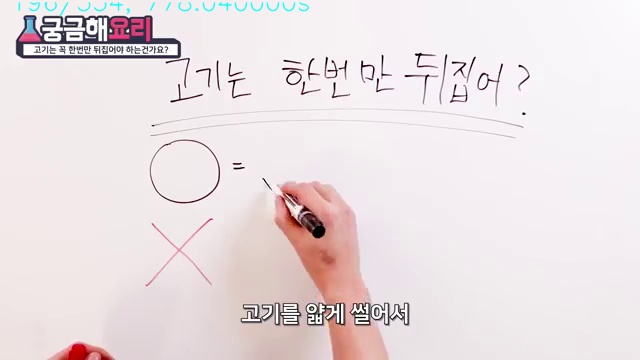 196/334, 778.040000s
궁금해요리
고기는 꼭 한번만 뒤집어야 하는건가요?
고기는 한번만 뒤집어?
=
고기를 얇게 썰어서